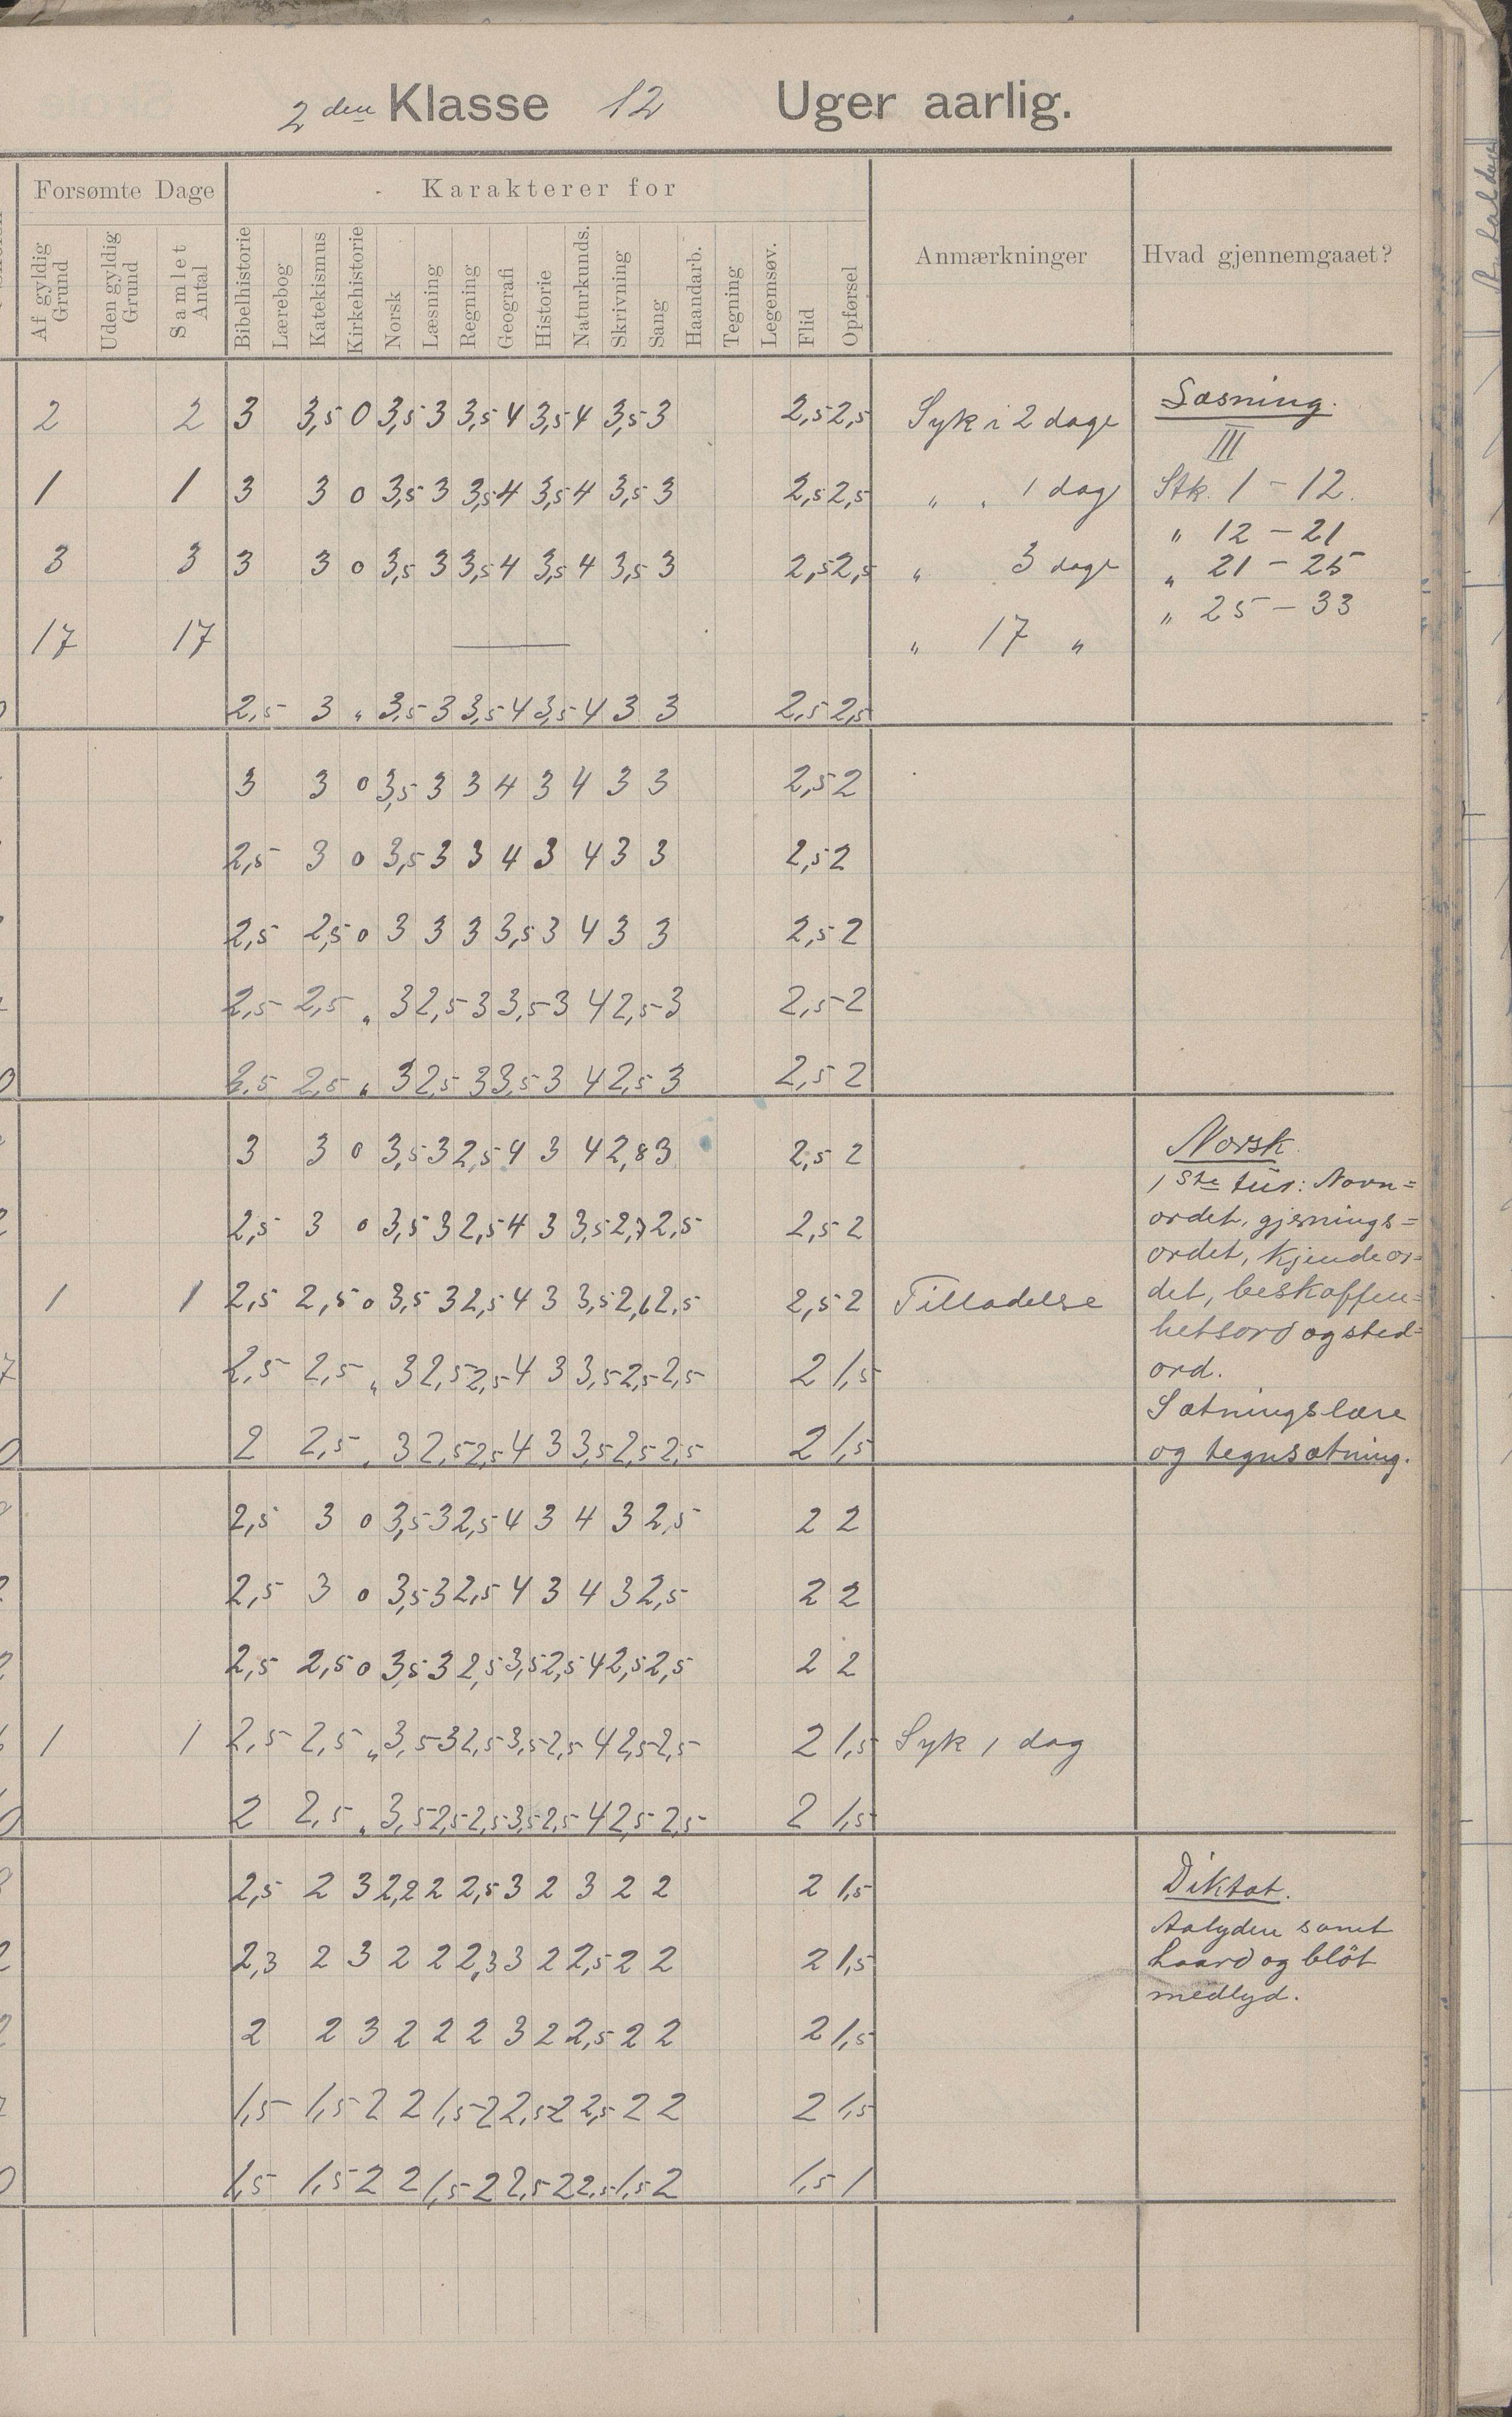 2 den Klasse 12 Uger aarlig.
Forsømte Dage Karakterer for Anmærkninger Hvad gjennemgaaet?
Af gyldig Grund Uden gyldig Grund Samlet Antal Bibelhistorie Lærebog Katekismus Kirkehistorie Norsk Læsning Regning Geografi Historie Naturkunds. Skrivning Sang Haandarb. Tegning Legemsøv. Flid Opførsel
Læsning.
III
2 2 3 3,5 0 3,5 3 3,5 4 3,5 4 3,5 3 2,5 2,5 Syk i 2 dage
1 1 3 3 0 3,5 3 3,5 4 3,5 4 3,5 3 2,5 2,5 " " 1 dag Stk. 1 - 12.
" 12 - 21
3 3 3 3 0 3,5 3 3,5 4 3,5 4 3,5 3 2,5 2,5 " 3 dage " 21 - 25
" 25 - 33
17 17 — " 17 "
2,5 3 " 3,5 3 3,5 4 3,5 4 3 3 2,5 2,5
3 3 0 3,5 3 3 4 3 4 3 3 2,5 2
2,5 3 0 3,5 3 3 4 3 4 3 3 2,5 2
2,5 2,5 0 3 3 3 3,5 3 4 3 3 2,5 2
2,5 2,5 " 3 2,5 3 3,5 3 4 2,5 3 2,5 2
2,5 2,5 " 3 2,5 3 3,5 3 4 2,5 3 2,5 2
3 3 0 3,5 3 2,5 4 3 4 2,8 3 2,5 2 Norsk.
1 ste tur: Navn=
2,5 3 0 3,5 3 2,5 4 3 3,5 2,7 2,5 2,5 2 ordet, gjernings=
ordet, kjendeor=
1 1 2,5 2,5 0 3,5 3 2,5 4 3 3,5 2,6 2,5 2,5 2 Tilladelse det, beskaffen=
hetsord og sted=
2,5 2,5 " 3 2,5 2,5 4 3 3,5 2,5 2,5 2 1,5 ord.
Sætningslære
2 2,5 " 3 2,5 2,5 4 3 3,5 2,5 2,5 2 1,5 og tegnsætning.
2,5 3 0 3,5 3 2,5 4 3 4 3 2,5 2 2
2,5 3 0 3,5 3 2,5 4 3 4 3 2,5 2 2
2,5 2,5 0 3,5 3 2,5 3,5 2,5 4 2,5 2,5 2 2
1 1 2,5 2,5 " 3,5 3 2,5 3,5 2,5 4 2,5 2,5 2 1,5 Syk 1 dag
2 2,5 " 3,5 2,5 2,5 3,5 2,5 4 2,5 2,5 2 1,5
2,5 2 3 2,2 2 2,5 3 2 3 2 2 2 1,5 Diktat.
Aalyden samt
2,3 2 3 2 2 2,3 3 2 2,5 2 2 2 1,5 haard og bløt
medlyd.
2 2 3 2 2 2 3 2 2,5 2 2 2 1,5
1,5 1,5 2 2 1,5 2 2,5 2 2,5 2 2 2 1,5
1,5 1,5 2 2 1,5 2 2,5 2 2,5 1,5 2 1,5 1